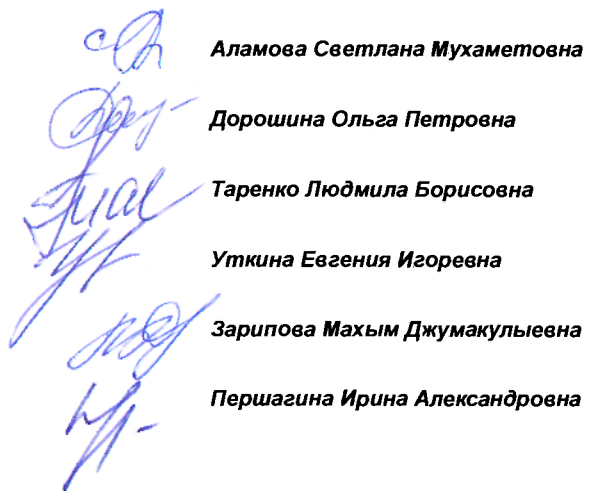 Аламова Светлана Мухаметовна
Дорошина Ольга Петровна
Таренко Людмила Борисовна
Уткина Евгения Игоревна
Зарипова Махым Джумакулыевна
Першагина Ирина Александровна